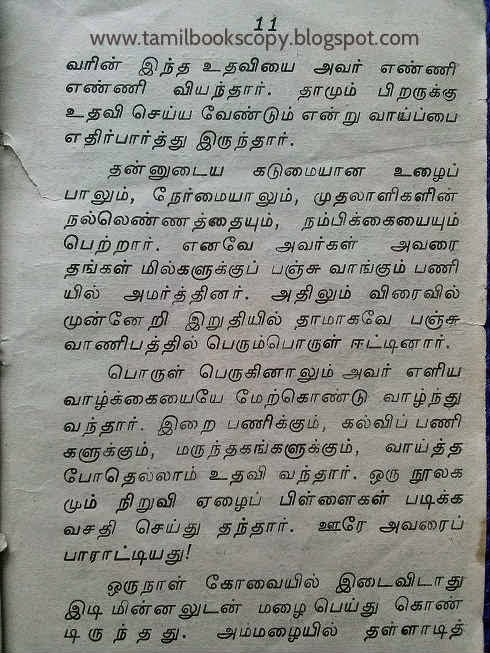 11
www.tamilbookscopy.blogspot.com
வரின் இந்த உதவியை அவர் எண்ணி
எண்ணி வியந்தார். தாமும் பிறருக்கு
உதவி செய்ய வேண்டும் என்று வாய்ப்பை
எதிர்பார்த்து இருந்தார்.
தன்னுடைய கடுமையான உழைப்
பாலும், நேர்மையாலும், முதலாளிகளின்
நல்லெண்ணத்தையும், நம்பிக்கையையும்
பெற்றார். எனவே அவர்கள் அவரை
தங்கள் மில்களுக்குப் பஞ்சு வாங்கும் பணி
யில் அமர்த்தினர். அதிலும் விரைவில்
முன்னேறி இறுதியில் தாமாகவே பஞ்சு
வாணிபத்தில் பெரும்பொருள் ஈட்டினார்.
பொருள் பெருகினாலும் அவர் எளிய
வாழ்க்கையையே மேற்கொண்டு வாழ்ந்து
வந்தார். இறை பணிக்கும், கல்விப் பணி
களுக்கும், மருந்தகங்களுக்கும், வாய்த்த
போதெல்லாம் உதவி வந்தார். ஒரு நூலக
மும் நிறுவி ஏழைப் பிள்ளைகள் படிக்க
வசதி செய்து தந்தார். ஊரே அவரைப்
பாராட்டியது!
ஒருநாள் கோவையில் இடைவிடாது
இடி மின்னலுடன் மழை பெய்து கொண்
டிருந்தது. அம்மழையில் தள்ளாடித்